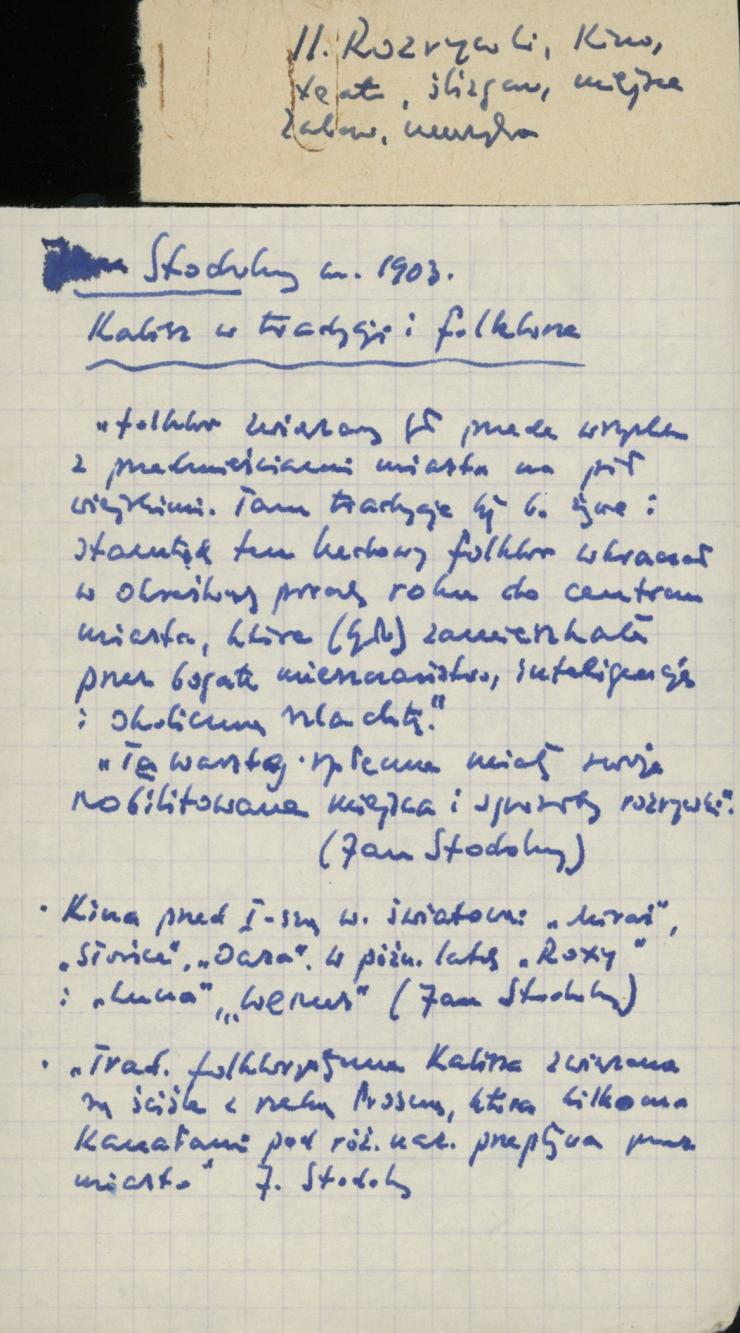 II. Rozrywki, Kino,
teatr, ślizgaw, miejsca
zabaw, muzyka
Stodolny ur. 1903.
Kalisz w tradycji i folklorze
„folklor związany był przede wszystkim
z przedmieściami miasta na pół
wiejskimi. Tam tradycje były b. żywe i
stamtąd ten ludowy folklor wkraczał
w określonej porze roku do centrum
miasta, które (było) zamieszkałe
przez bogate mieszczaństwo, inteligencję
i okoliczną szlachtę."
„Te warstwy społeczne miały swoje
nobilitowane miejsca i sposoby rozrywki".
(Jan Stodolny)
· Kina przed I-szą w. światową: „Miraż",
„Słońce", „Oaza". w późn. latach „Roxy"
i „Luna", „Wenus" (Jan Stodolny)
· „Trad. folklorystyczne Kalisza związane
są ściśle z rzeką Prosną, która kilkoma
kanałami pod róż. naz. przepływa przez
miasto" J. Stodolny